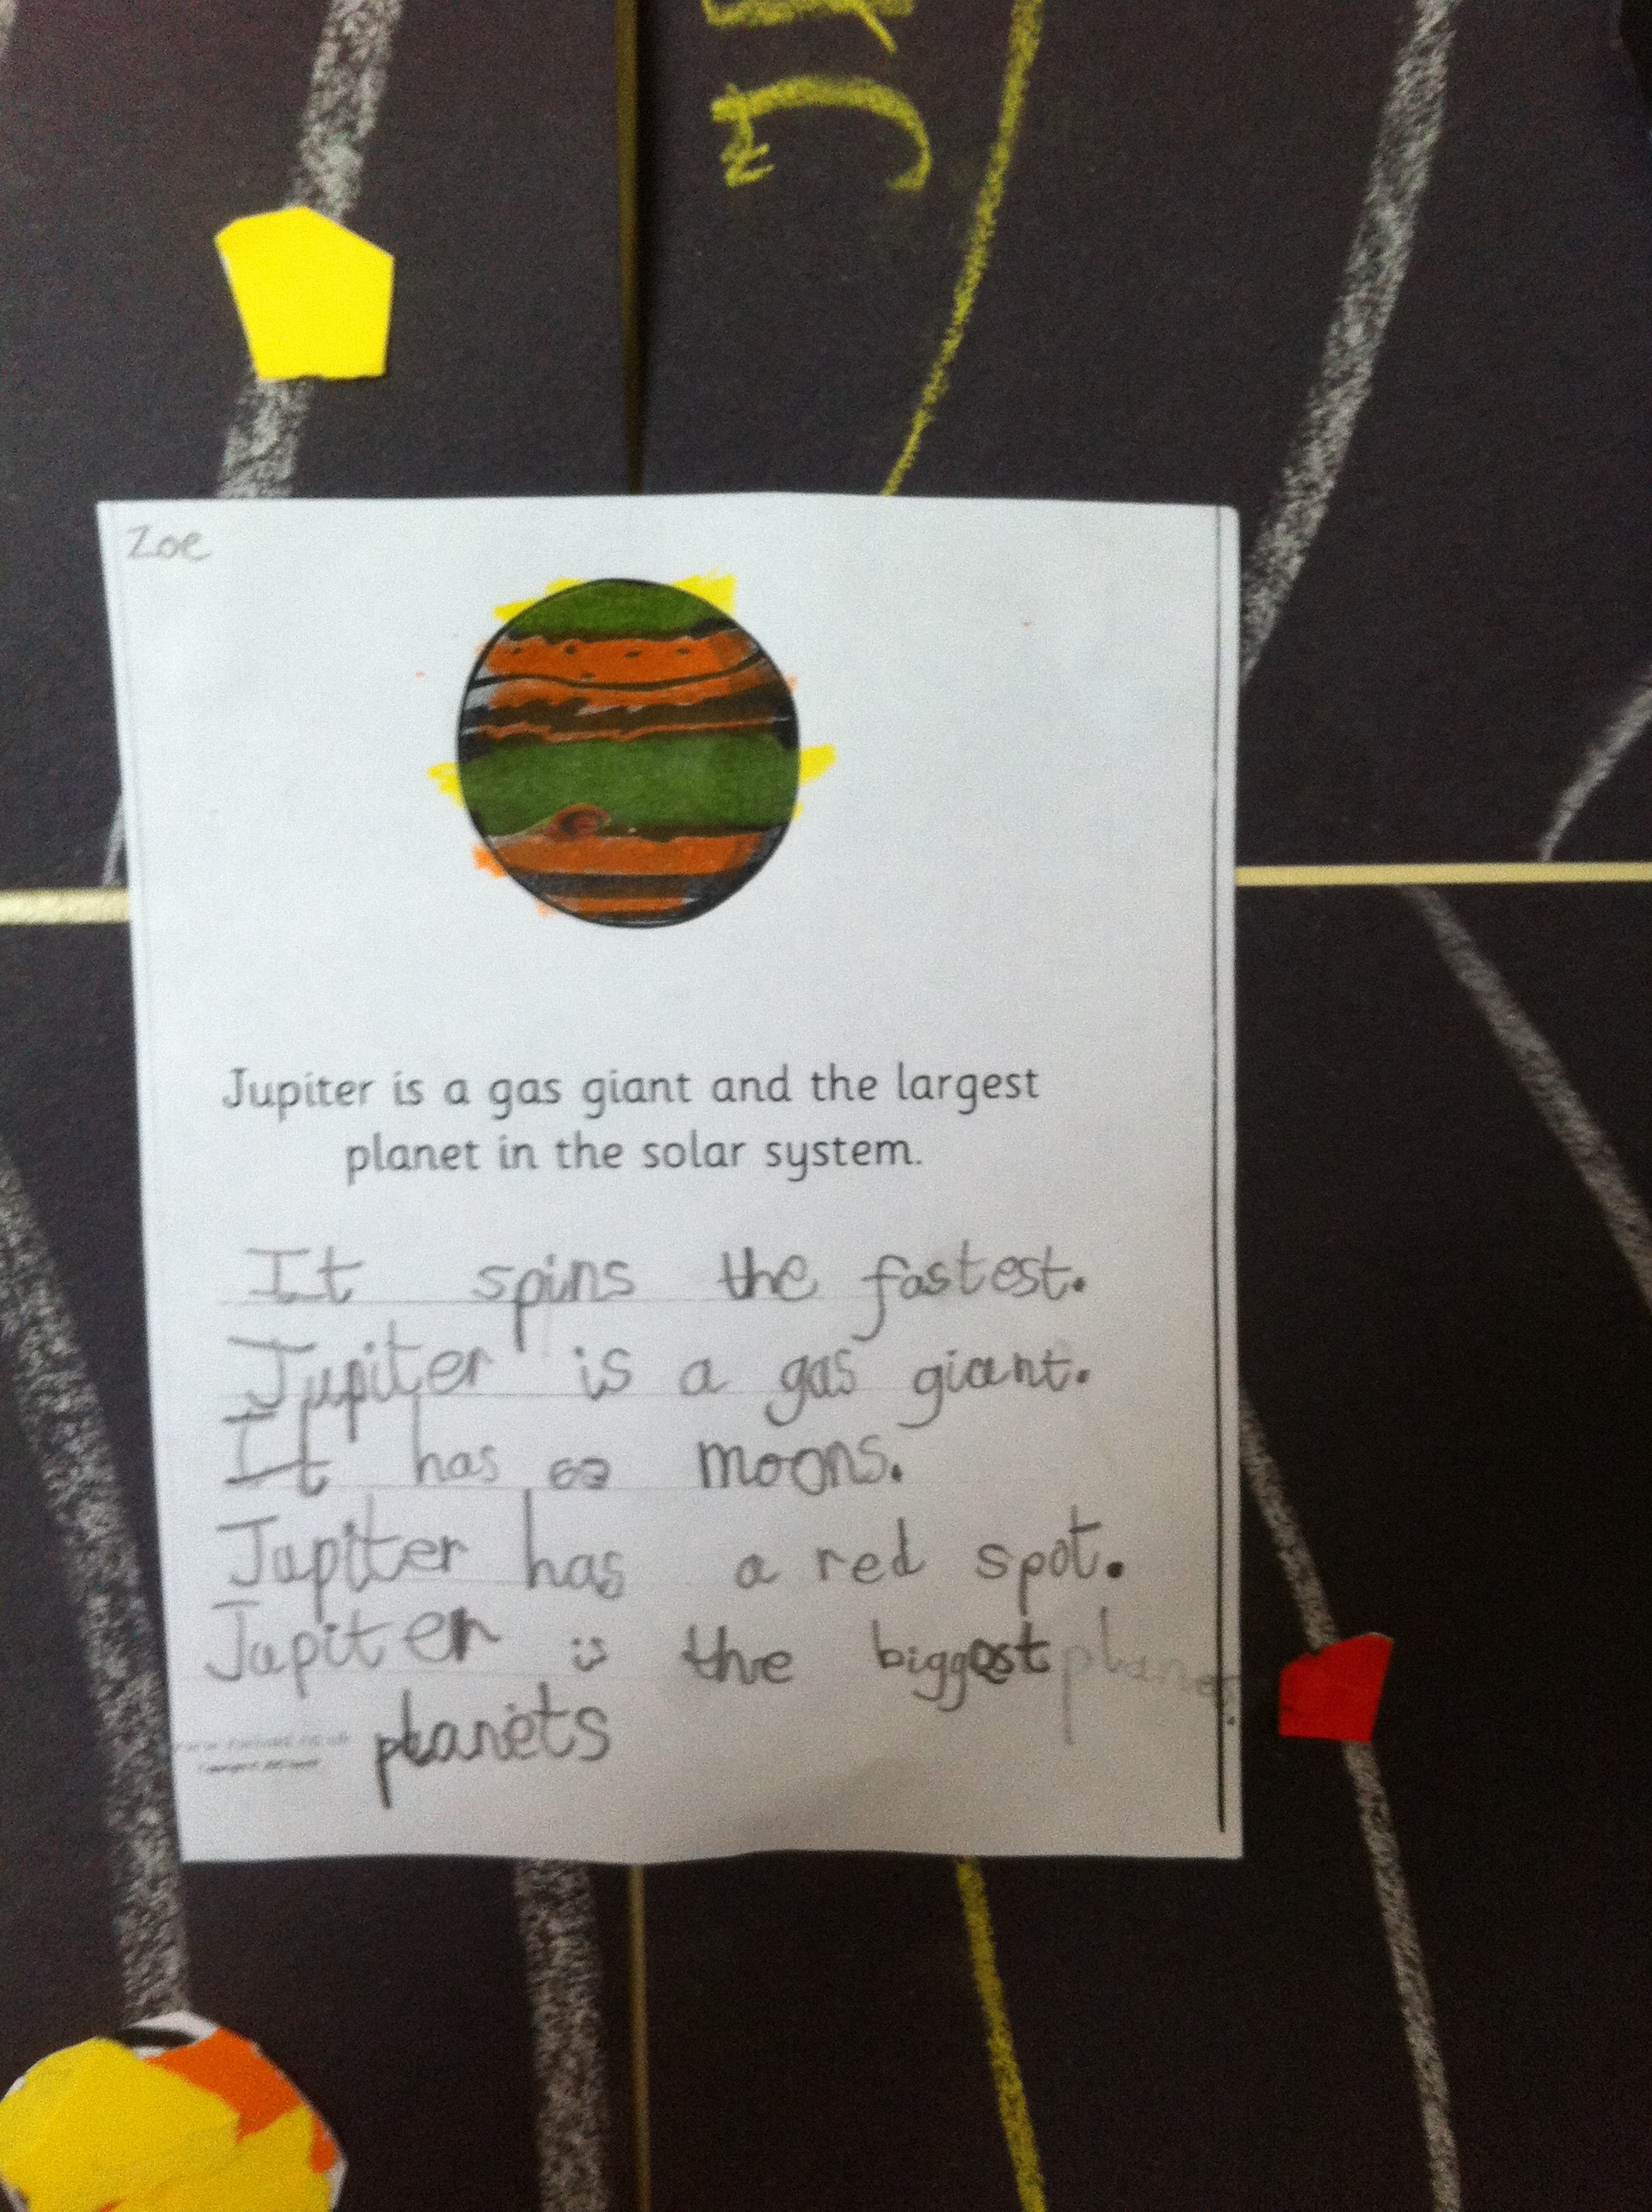 Zoe
Jupiter is a gas giant and the largest
planet in the solar system.
It spins the fastest.
Jupiter is a gas giant.
It has 62 moons.
Jupiter has a red spot.
Jupiter is the biggest planet
planets